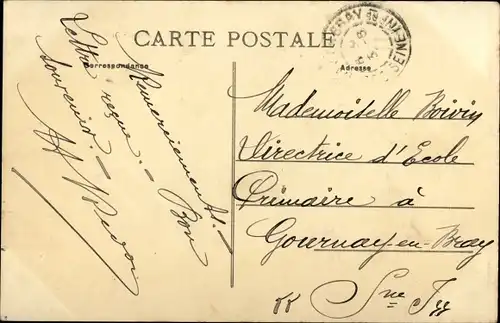 CARTE POSTALE
Correspondance
Adresse
Lettre reçue. –
Remerciements. –
Bon
souvenir. –
Mademoiselle Boivin
Directrice d'Ecole
Primaire à
Gournay-en-Bray
Sne Ire